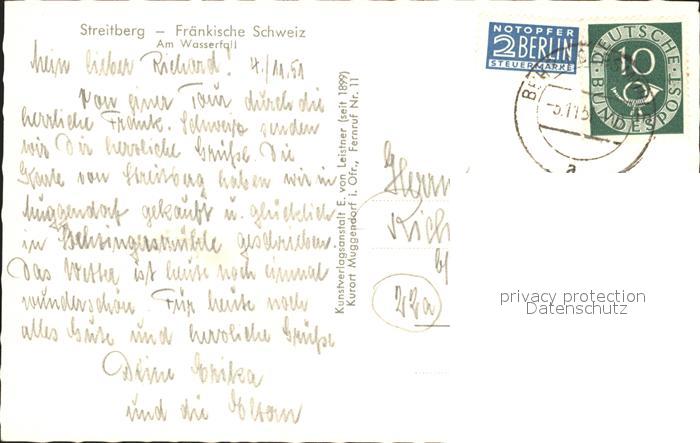 Streitberg – Fränkische Schweiz
Am Wasserfall
Mein lieber Richard! 4./11.51
Von einer Tour durch die
herrliche Fränk. Schweiz senden
wir Dir herzliche Grüße. Die
Karte von Streitberg haben wir in
Muggendorf gekauft u. glücklich
in Behringersmühle geschrieben.
Das Wetter ist heute noch einmal
wunderschön. Für heute noch
alles Gute und herzliche Grüße
Deine Erika
und die Eltern
Kunstverlagsanstalt E. von Leistner (seit 1899)
Kurort Muggendorf i. Ofr., Fernruf Nr. 11
NOTOPFER
2 BERLIN
STEUERMARKE
DEUTSCHE
BUNDESPOST
10
-5.11.5
a
Herrn
Rich
22a
privacy protection
Datenschutz